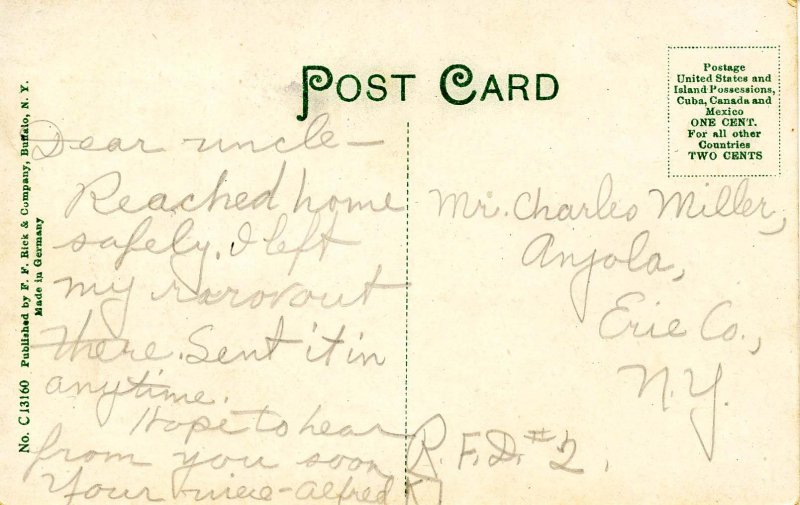 POST CARD
Postage
United States and
Island Possessions,
Cuba, Canada and
Mexico
ONE CENT.
For all other
Countries
TWO CENTS
No. C 13160 Published by F. F. Rick & Company, Buffalo, N. Y.
Made in Germany
Dear uncle—
Reached home
safely. I left
my out
there. Sent it in
anytime.
Hope to hear
from you soon
Your Alfred
Mr. Charles Miller,
Angola,
Erie Co.,
N.Y.
R.F.D. #2.